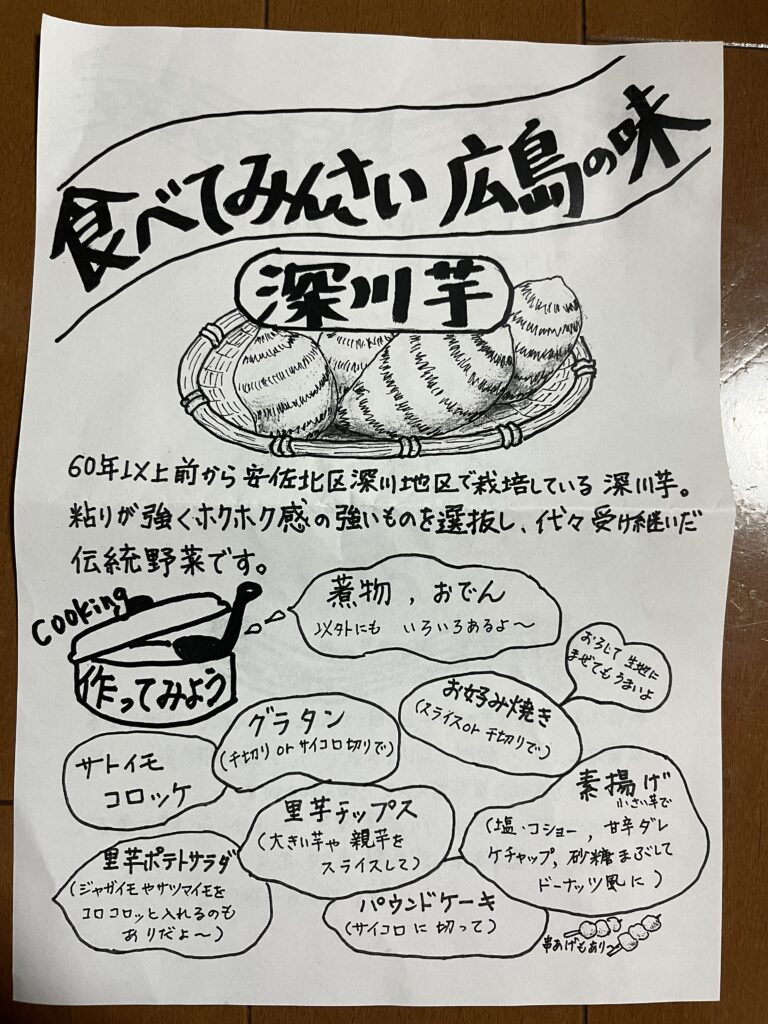 食べてみんさい 広島の味
深川芋
60年以上前から安佐北区深川地区で栽培している 深川芋。
粘りが強くホクホク感の強いものを選抜し、代々受け継いだ
伝統野菜です。
Cooking
作ってみよう
煮物 , おでん
以外にも いろいろあるよ〜
おろして 生地に
まぜてもうまいよ
お好み焼き
(スライスor千切りで)
グラタン
(千切り or サイコロ切りで)
サトイモ
コロッケ
素揚げ
小さい芋で
(塩・コショー , 甘辛ダレ
ケチャップ, 砂糖まぶして
ドーナッツ風に)
里芋チップス
(大きい芋や 親芋を
スライスして)
里芋ポテトサラダ
(ジャガイモやサツマイモを
コロコロッと入れるのも
ありだよ〜)
パウンドケーキ
(サイコロに 切って)
串あげもあり〜